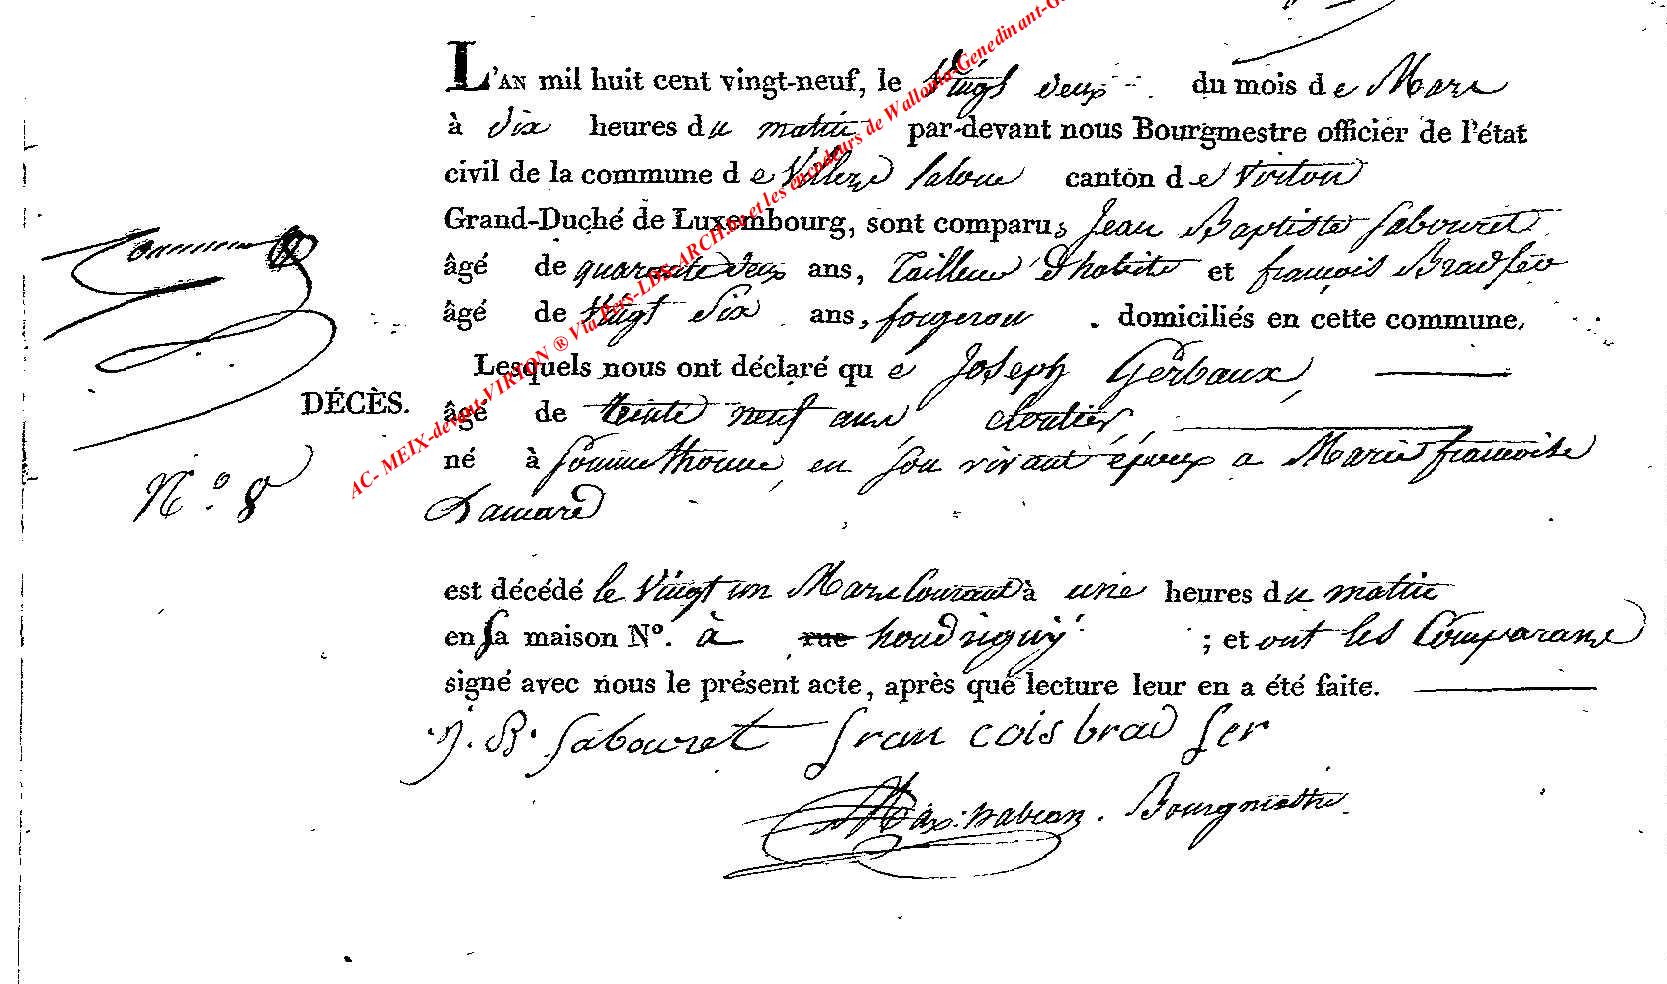 L'AN mil huit cent vingt-neuf, le vingt deux du mois de Mars
à dix heures du matin par-devant nous Bourgmestre officier de l'état
civil de la commune de Villers la loue canton de Virton
Grand-Duché de Luxembourg, sont comparus Jean Baptiste Sabouret
âgé de quarante deux ans, Tailleur d'habits et françois Bradfer
âgé de vingt six ans, forgeron . domiciliés en cette commune.
Lesquels nous ont déclaré que Joseph Gerbaux,
DÉCÈS.
âgé de trente neuf ans cloutier,
né à Sommethonne, en son vivant époux a Marie françoise
N.º 8
Lamard
est décédé le Vingt un Mars Courant à une heures du matin
en sa maison Nº. à rue houdrigny ; et ont les Comparans
signé avec nous le présent acte, après que lecture leur en a été faite.
J. B. Sabouret francois brad fer
Bourgmestre.
AC- MEIX-devant-VIRTON ® Via Pers-LDS-ARCH.be et les encodeurs de Wallonia-Genedinant-G